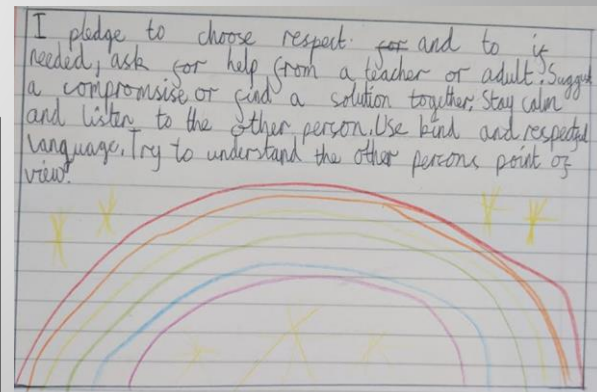 I pledge to choose respect. for and to if
needed, ask for help from a teacher or adult. Suggest
a compromsise or find a solution together. Stay calm
and listen to the other person. Use kind and respectful
language. Try to understand the other persons point of
view!